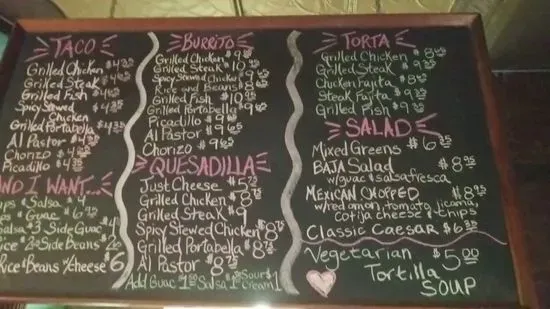 TACO
Grilled Chicken $4.35
Grilled Steak $4.35
Grilled Fish $4.35
Spicy Stewed Chicken $4.35
Grilled Portabella $4.35
Al Pastor $4.35
Chorizo $4.35
Picadillo $4.35
ND I WANT...
ps & Salsa $4
ps & Guac $6.75
alsa $3 Side Guac $4
Rice $2 Side Beans
Rice & Beans w/cheese $6
BURRITO
Grilled Chicken $9
Grilled Steak $10
Spicy Stewed Chicken $9
Rice and Beans $8
Grilled Fish $10
Grilled Portabella $9
Picadillo $9.65
Al Pastor $9.65
Chorizo $9.65
QUESADILLA
Just Cheese $5.75
Grilled Chicken $8
Grilled Steak $9
Spicy Stewed Chicken $8.75
Grilled Portabella $8.75
Al Pastor $8.75
Add Guac $1.50 Salsa $1 Sour Cream $1
TORTA
Grilled Chicken $8
Grilled Steak $9
Chicken Fajita $8
Steak Fajita $9
Grilled Fish $9
SALAD
Mixed Greens $6.25
BAJA Salad $8.95
w/guac & salsa fresca
MEXICAN CHOPPED $8.95
w/red onion, tomato, jicama,
cotija cheese & chips
Classic Caesar $6
Vegetarian $5.00
Tortilla
SOUP